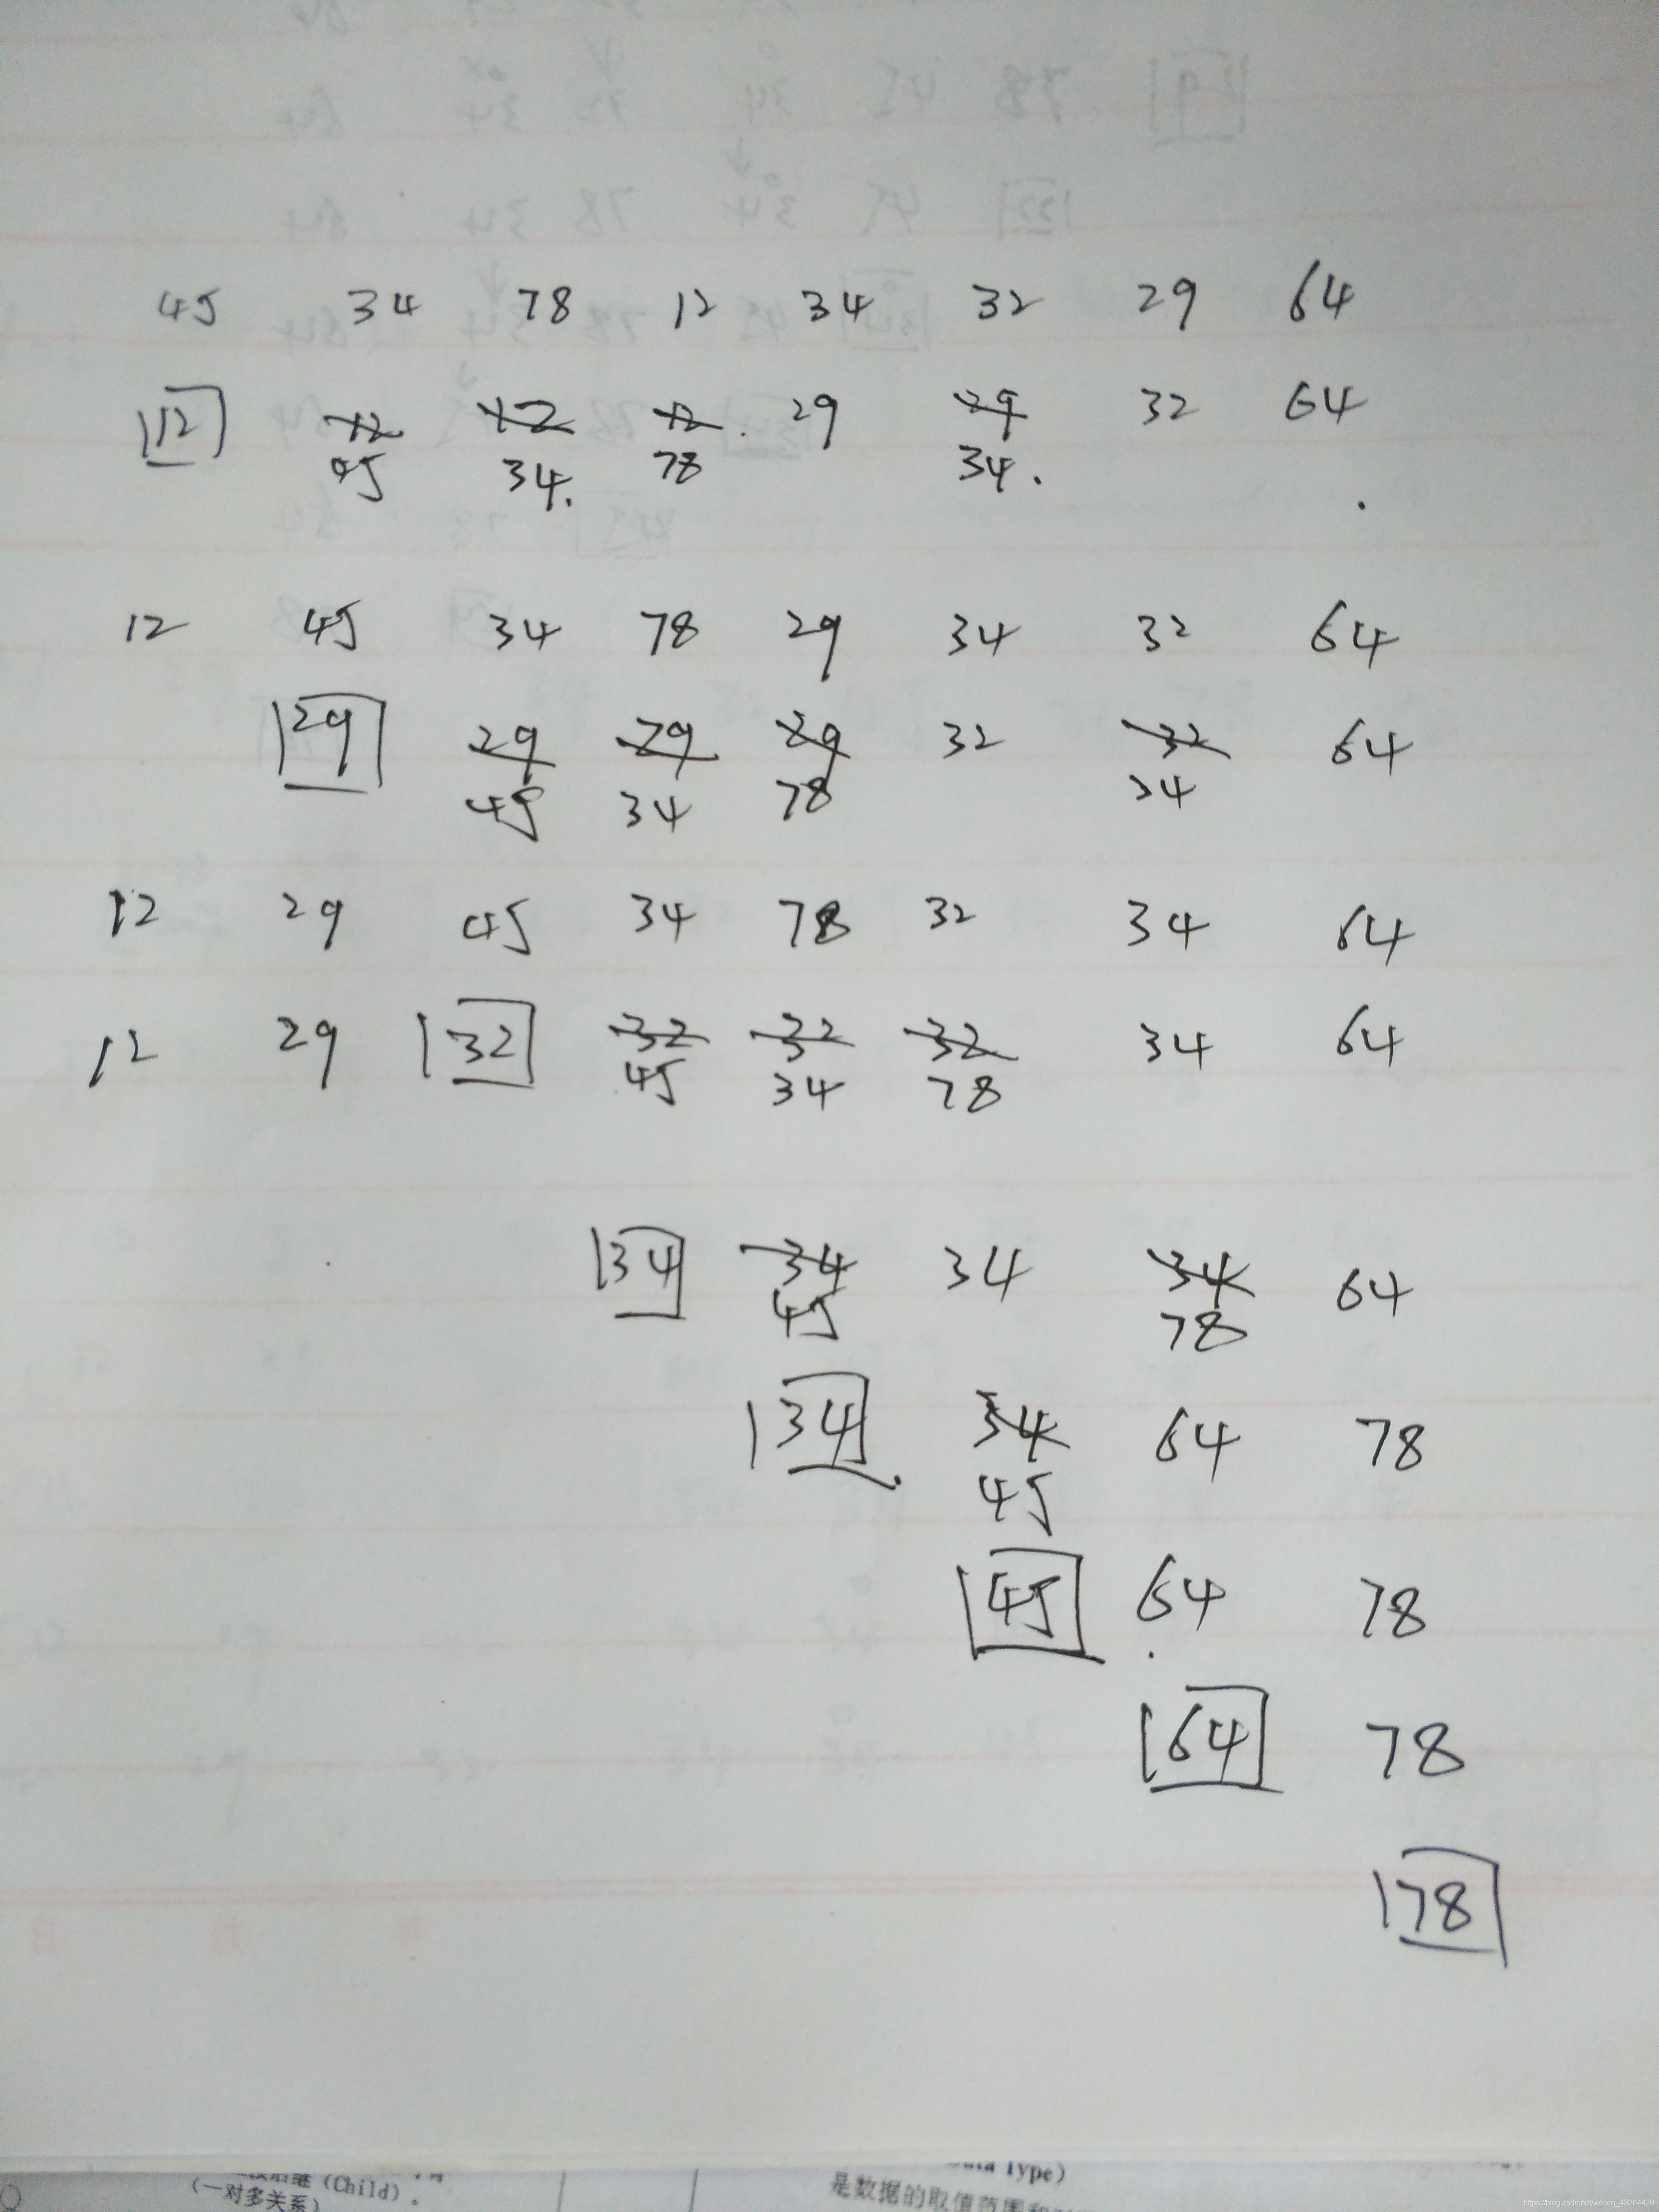 45 34 78 12 34 32 29 64
12 12 12 12 29 29 32 64
45 34 78 34
12 45 34 78 29 34 32 64
29 29 29 29 32 32 64
45 34 78 34
12 29 45 34 78 32 34 64
12 29 32 32 32 32 34 64
45 34 78
34 34 34 34 64
45 78
34 34 64 78
45
45 64 78
64 78
78
(Child).
(一对多关系)
Type)
是数据的取值范围和